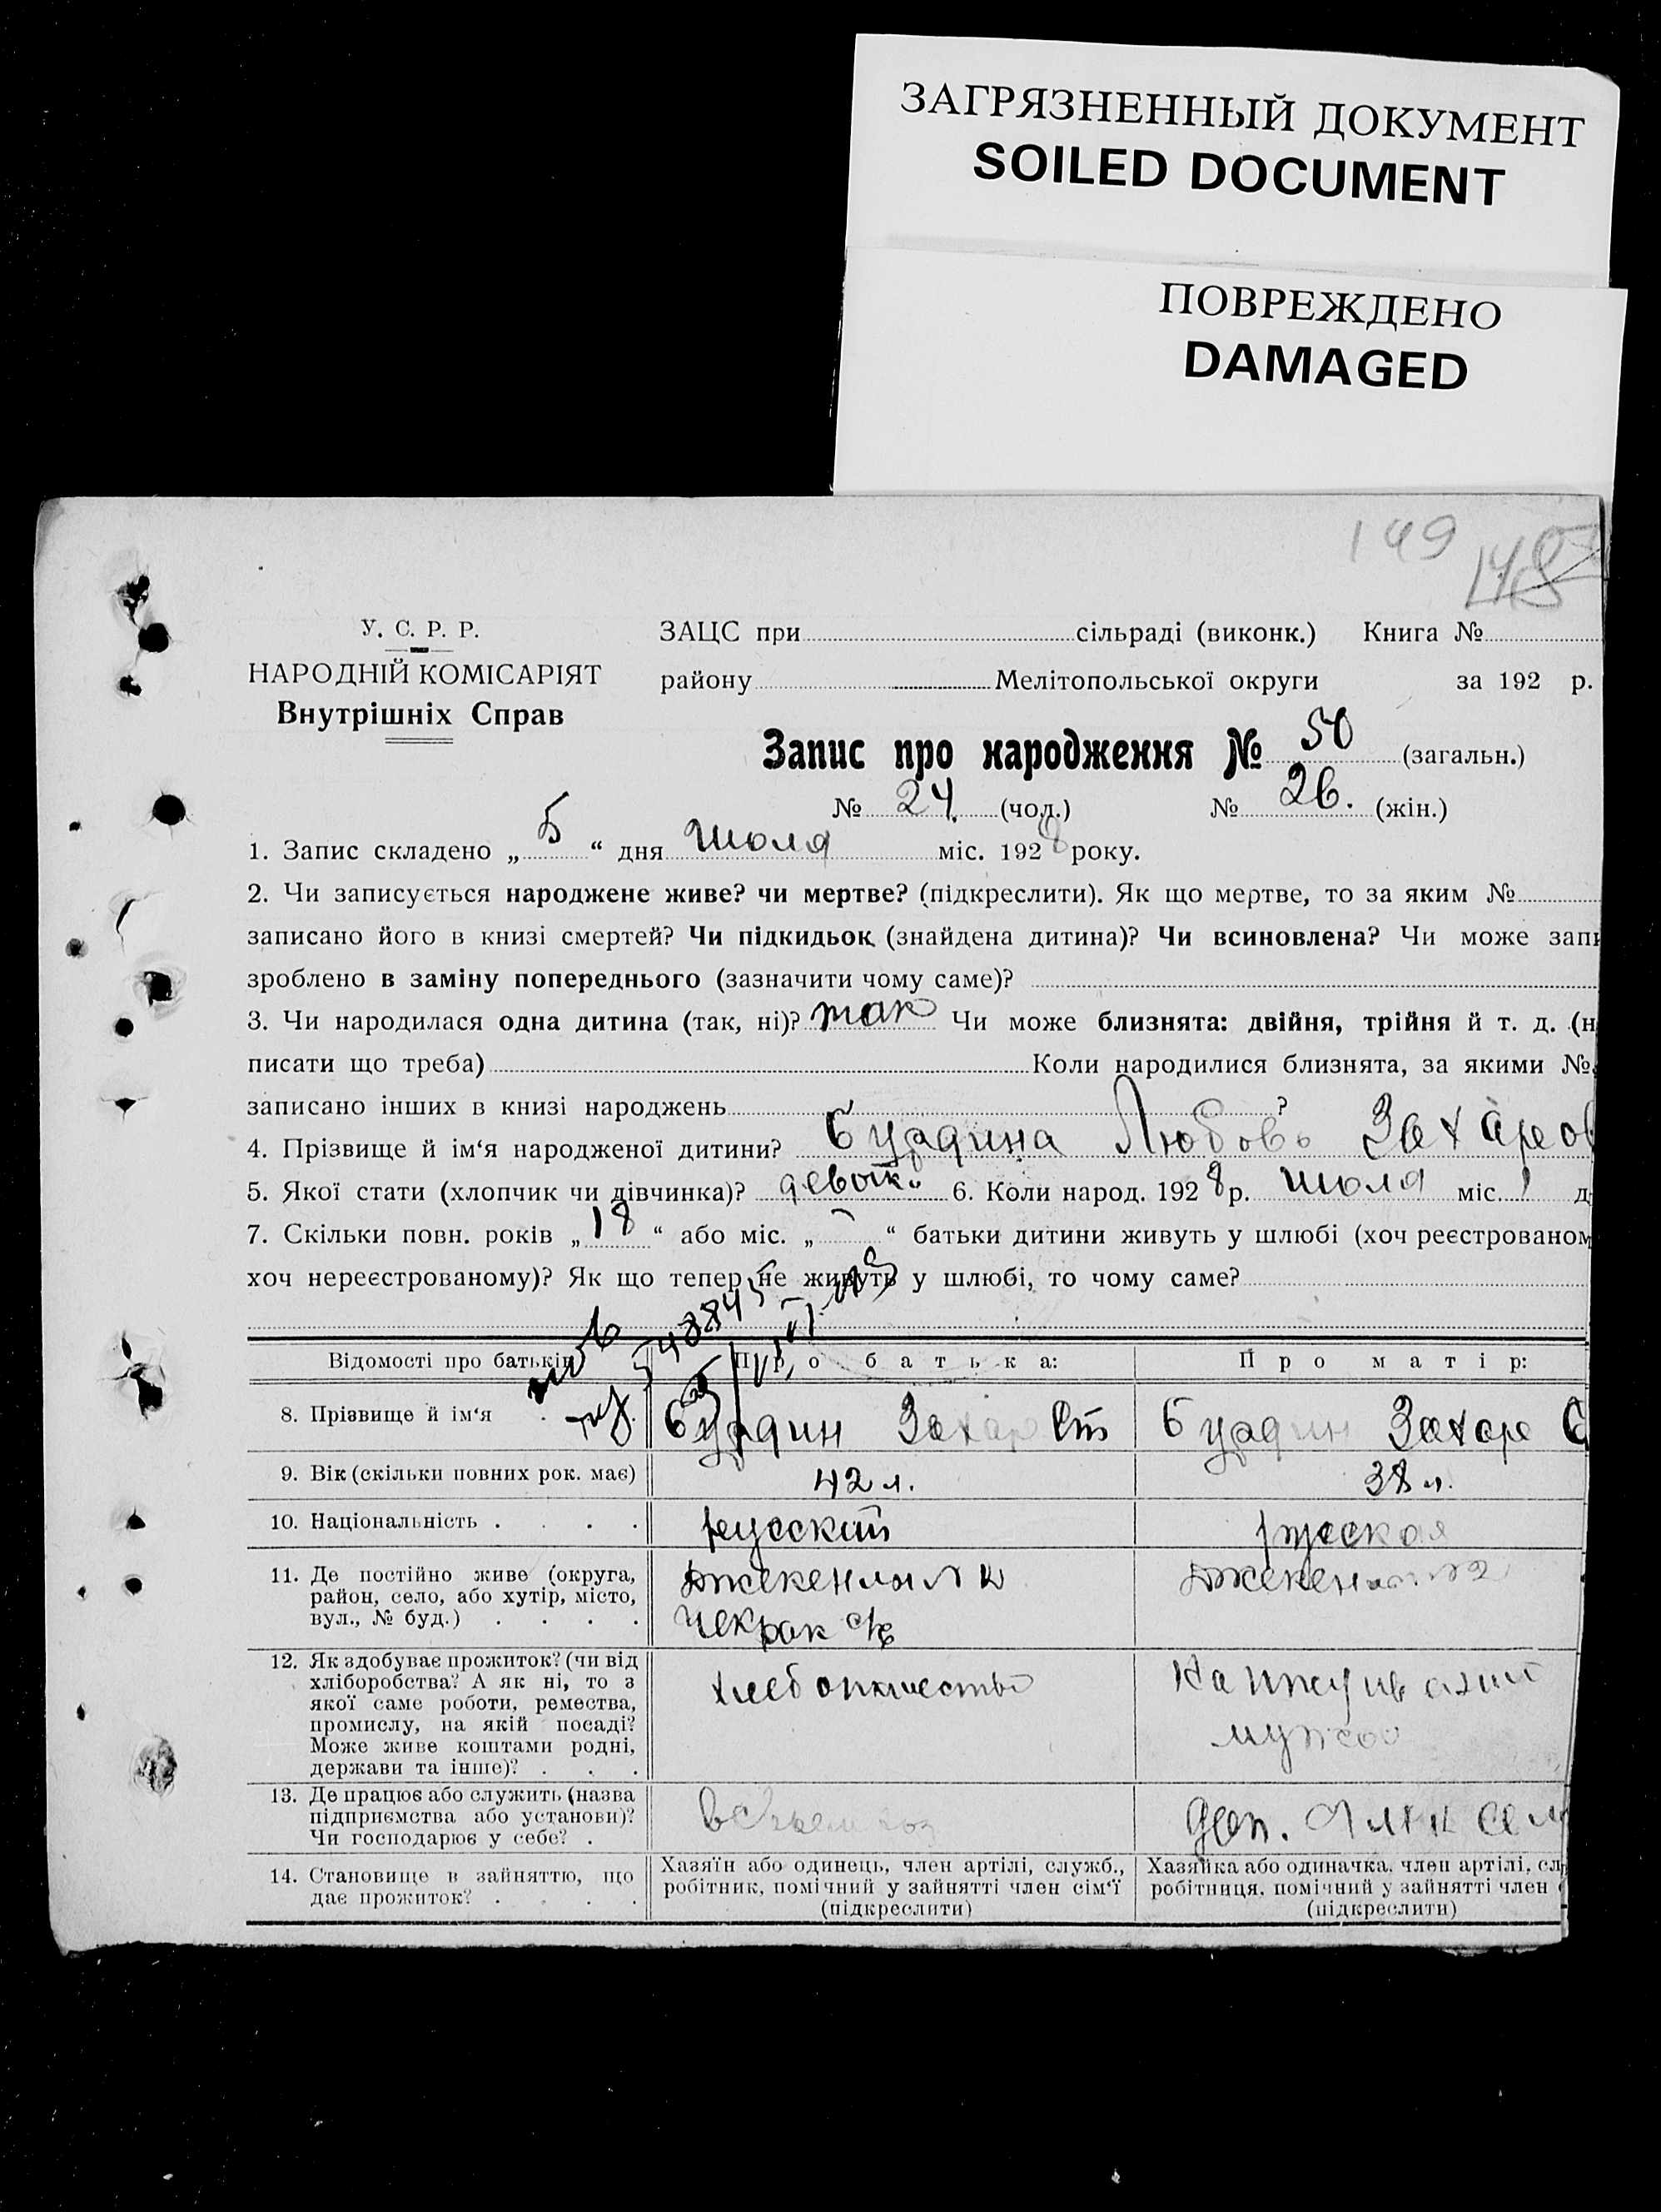 ЗАГРЯЗНЕННЫЙ ДОКУМЕНТ
SOILED DOCUMENT
ПОВРЕЖДЕНО
DAMAGED
149 148
У. С. Р. Р.
НАРОДНІЙ КОМІСАРІЯТ
Внутрішніх Справ
ЗАЦС при сільраді (виконк.) Книга №
району Мелітопольської округи за 192 р.
Запис про народження № 50 (загальн.)
№ 24 (чол.) № 26. (жін.)
1. Запис складено „ 5 “ дня июля міс. 1928 року.
2. Чи записується народжене живе? чи мертве? (підкреслити). Як що мертве, то за яким №
записано його в книзі смертей? Чи підкидьок (знайдена дитина)? Чи всиновлена? Чи може
зроблено в заміну попереднього (зазначити чому саме)?
3. Чи народилася одна дитина (так, ні)? так Чи може близнята: двійня, трійня й т. д. (н
писати що треба) Коли народилися близнята, за якими №
записано інших в книзі народжень ?
4. Прізвище й ім‘я народженої дитини? Бурдина Любовь Захаров
5. Якої стати (хлопчик чи дівчинка)? девочк. 6. Коли народ. 1928 р. июля міс. 1 д
7. Скільки повн. років „ 18 “ або міс. „ - “ батьки дитини живуть у шлюбі (хоч реєстрованом
хоч нереєстрованому)? Як що тепер не живуть у шлюбі, то чому саме?
Відомості про батьків Про батька: Про матір:
8. Прізвище й ім‘я . Бурдин Захар Ст Бурдин Захаре С
9. Вік (скільки повних рок. має) 42 л. 38 л.
10. Національність . . . . русский русская
11. Де постійно живе (округа,
район, село, або хутір, місто,
вул., № буд.) . . . .
Чекрак с/с
12. Як здобуває прожиток? (чи від
хліборобства? А як ні, то з
якої саме роботи, ремества,
промислу, на якій посаді?
Може живе коштами родні,
держави та інше)? . . .
хлебопашество
На иждивении
мужа
13. Де працює або служить (назва
підприємства або установи)?
Чи господарює у себе? .
14. Становище в зайняттю, що
дає прожиток? . . . .
Хазяїн або одинець, член артілі, служб.,
робітник, помічний у зайнятті член сім‘ї
(підкреслити)
Хазяйка або одиначка, член артілі, сл
робітниця, помічний у зайнятті член
(підкреслити)